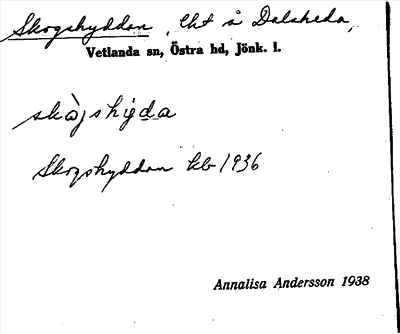 Skogshyddan, lht å Dalsheda,
Vetlanda sn, Östra hd, Jönk. l.
skògshyd̲a̲
Skogshyddan kb 1936
Annalisa Andersson 1938